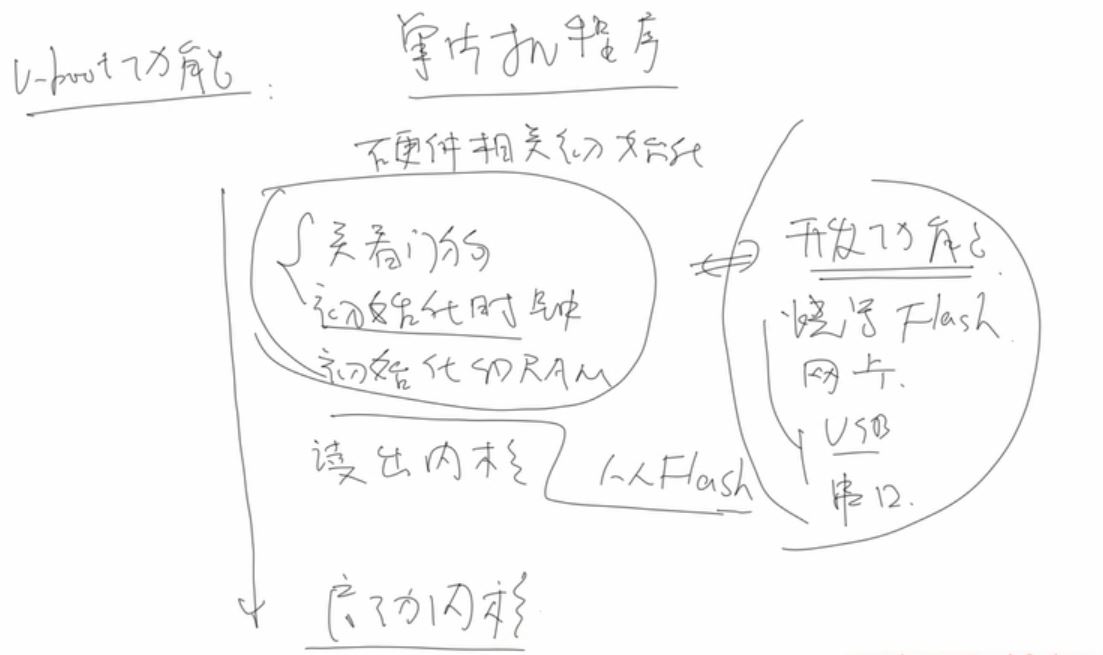 u-boot功能:
单片机程序
硬件相关初始化
关看门狗
初始化时钟
初始化SDRAM
读出内核
从Flash
启动内核
开发功能
烧写Flash
网卡.
USB
串口.